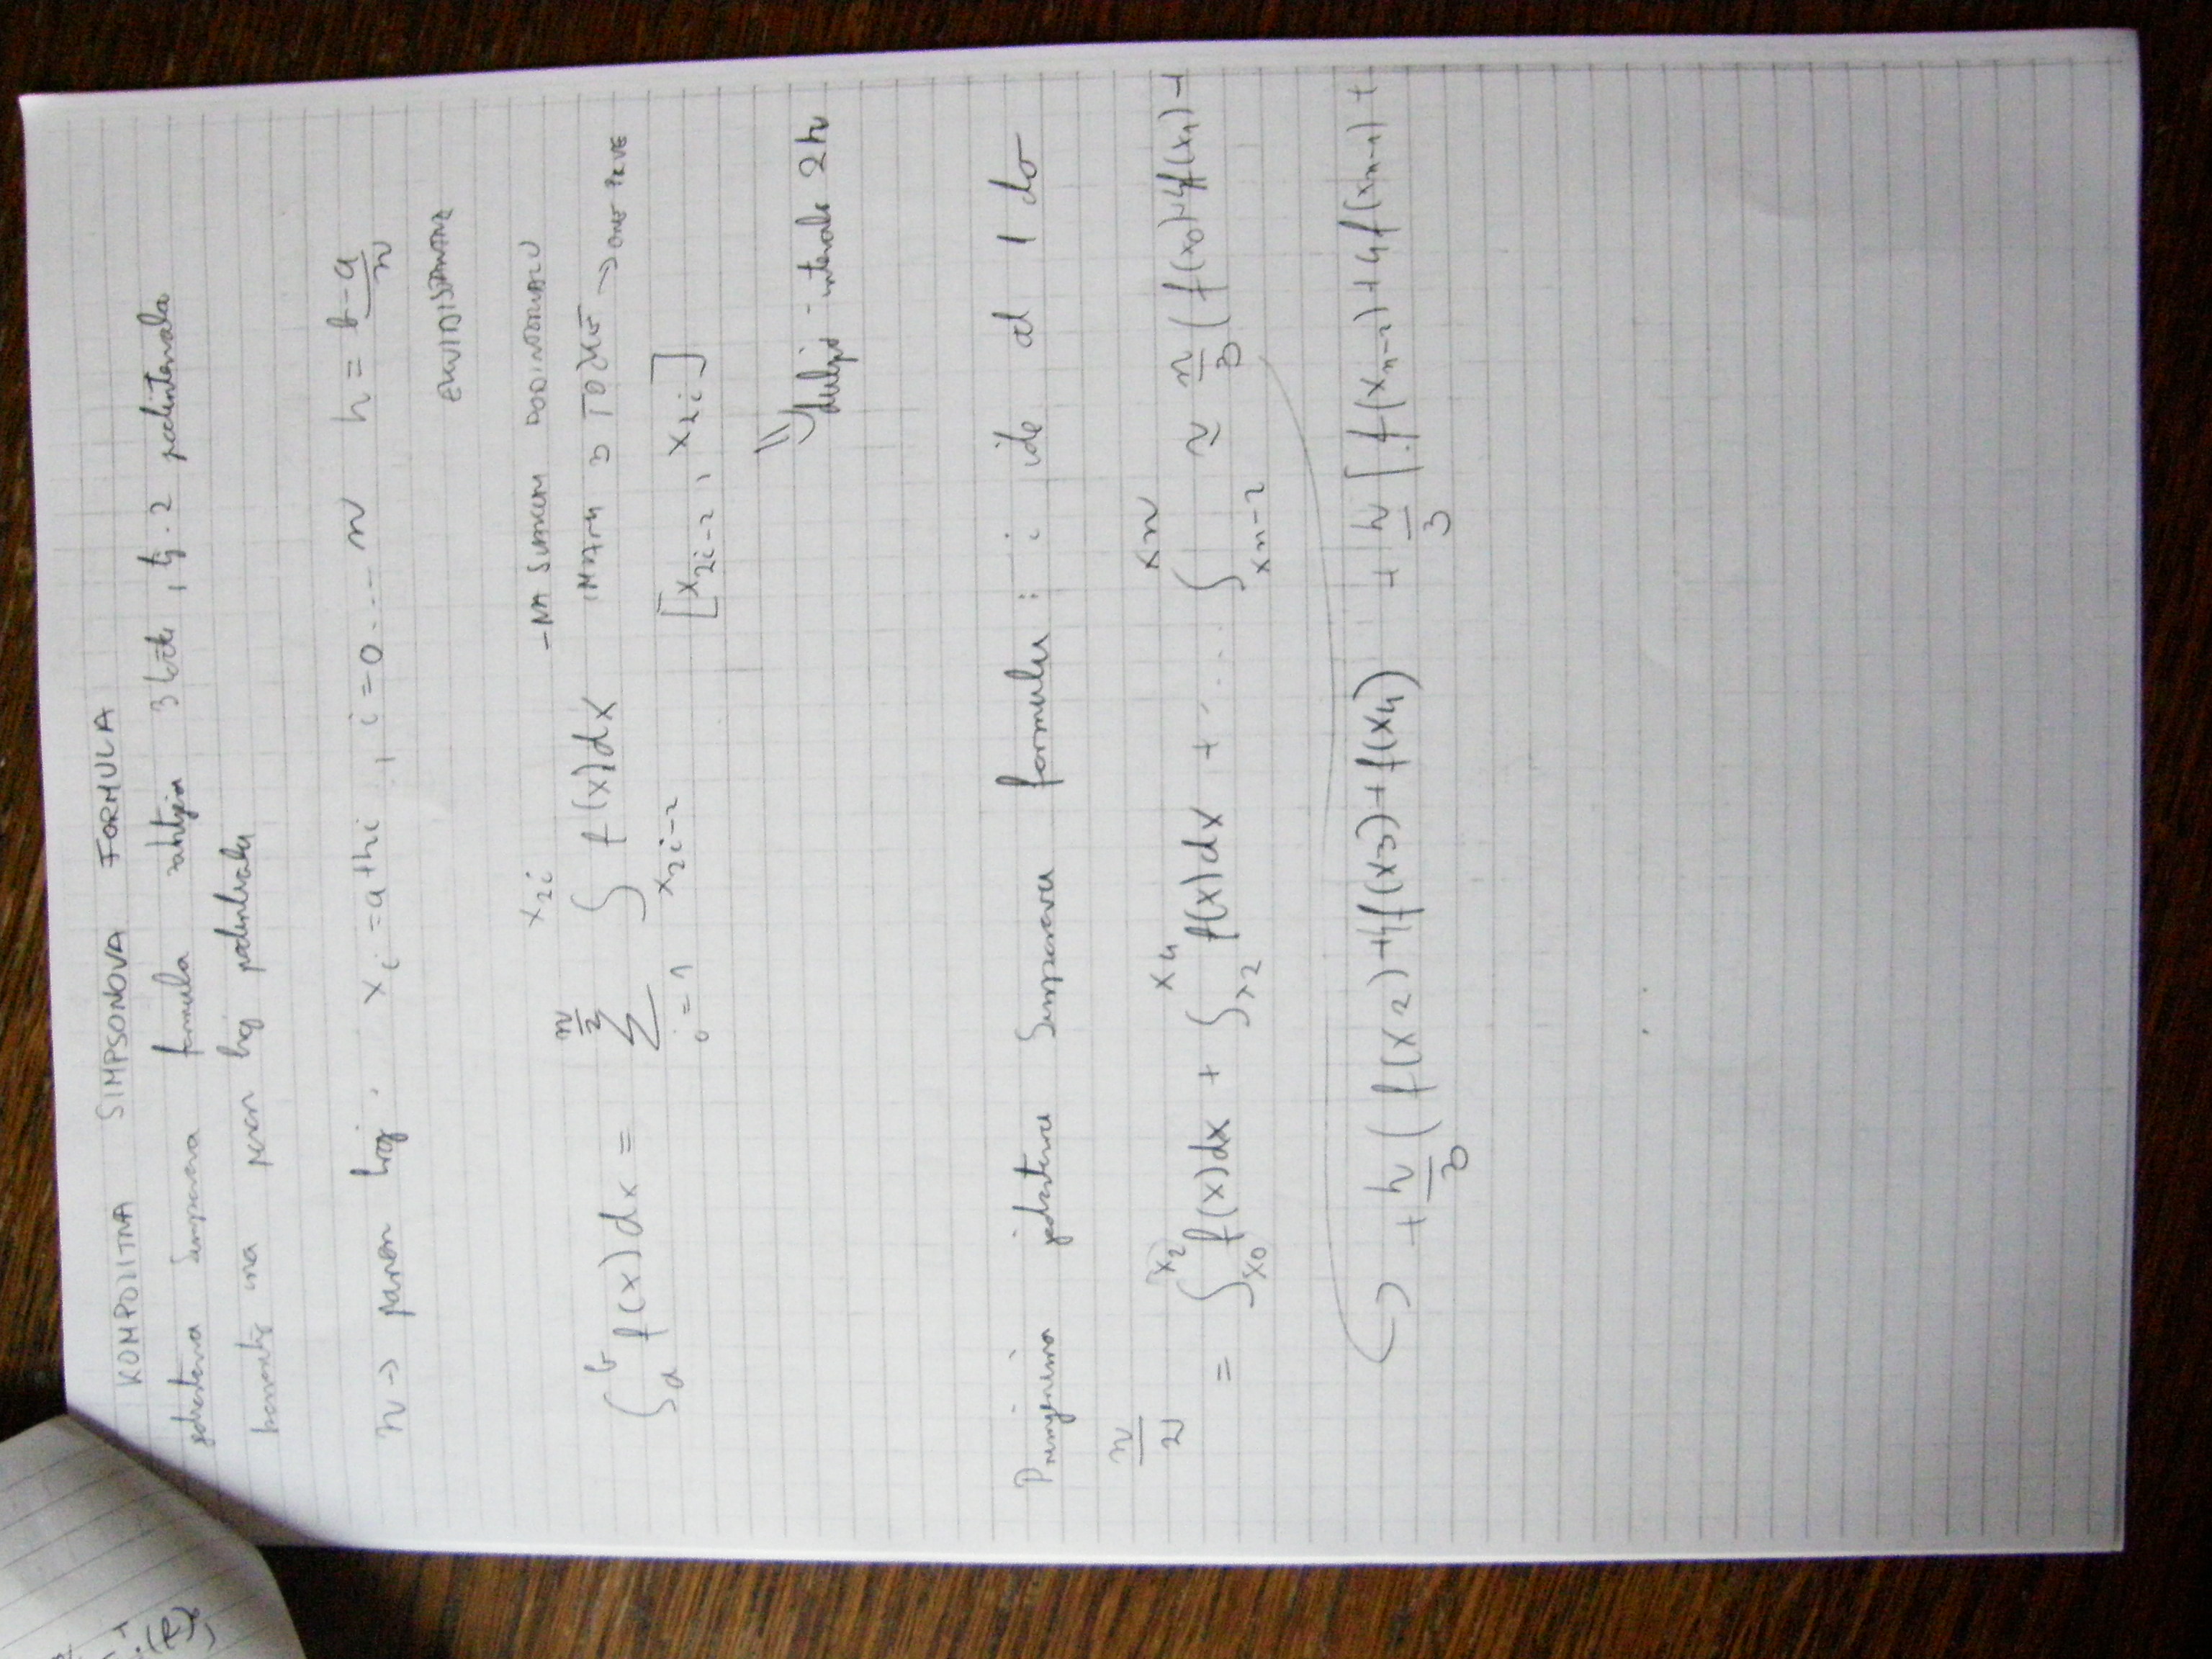 KOMPOZITNA SIMPSONOVA FORMULA
jednostavna Simpsonova formula zahtjeva 3 točke, tj. 2 podintervala
na paran broj podintervala
n → paran broj. x_i = a+hi, i=0...n h = \frac{b-a}{n}
EKVIDISTANTNE
-NA SVAKOM PODINTERVALU
IMAM 3 TOČKE → OVE PRVE
∫_a^b f(x)dx = \sum_{i=1}^{\frac{n}{2}} ∫_{x_{2i-2}}^{x_{2i}} f(x)dx
[x_{2i-2}, x_{2i}]
duljina intervala 2h
Primjenimo jednostavnu Simpsonovu formulu: i ide od 1 do
\frac{n}{2}
= ∫_{x_0}^{x_2} f(x)dx + ∫_{x_2}^{x_4} f(x)dx + ... ∫_{x_{n-2}}^{x_n} ≈ \frac{h}{3} (f(x_0)+4f(x_1)+
+ \frac{h}{3} (f(x_2)+4f(x_3)+f(x_4) + \frac{h}{3} [f(x_{n-2})+4f(x_{n-1})+